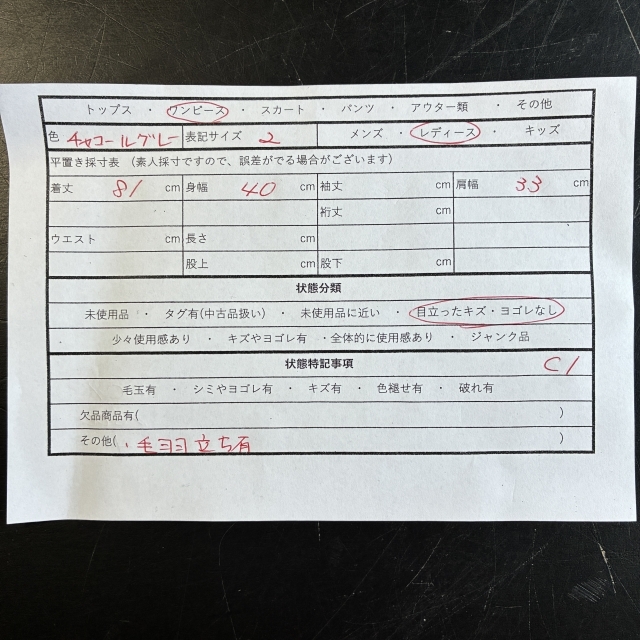 トップス ・ ワンピース ・ スカート ・ パンツ ・ アウター類 ・ その他
色 チャコールグレー 表記サイズ 2 メンズ ・ レディース ・ キッズ
平置き採寸表 （素人採寸ですので、誤差がでる場合がございます）
着丈 81 cm 身幅 40 cm 袖丈 cm 肩幅 33 cm
裄丈 cm
ウエスト cm 長さ cm
股上 cm 股下 cm
状態分類
未使用品 ・ タグ有(中古品扱い) ・ 未使用品に近い ・ 目立ったキズ・ヨゴレなし
少々使用感あり ・ キズやヨゴレ有 ・全体的に使用感あり ・ ジャンク品
状態特記事項 C1
毛玉有 ・ シミやヨゴレ有 ・ キズ有 ・ 色褪せ有 ・ 破れ有
欠品商品有( )
その他( ・毛羽立ち有 )